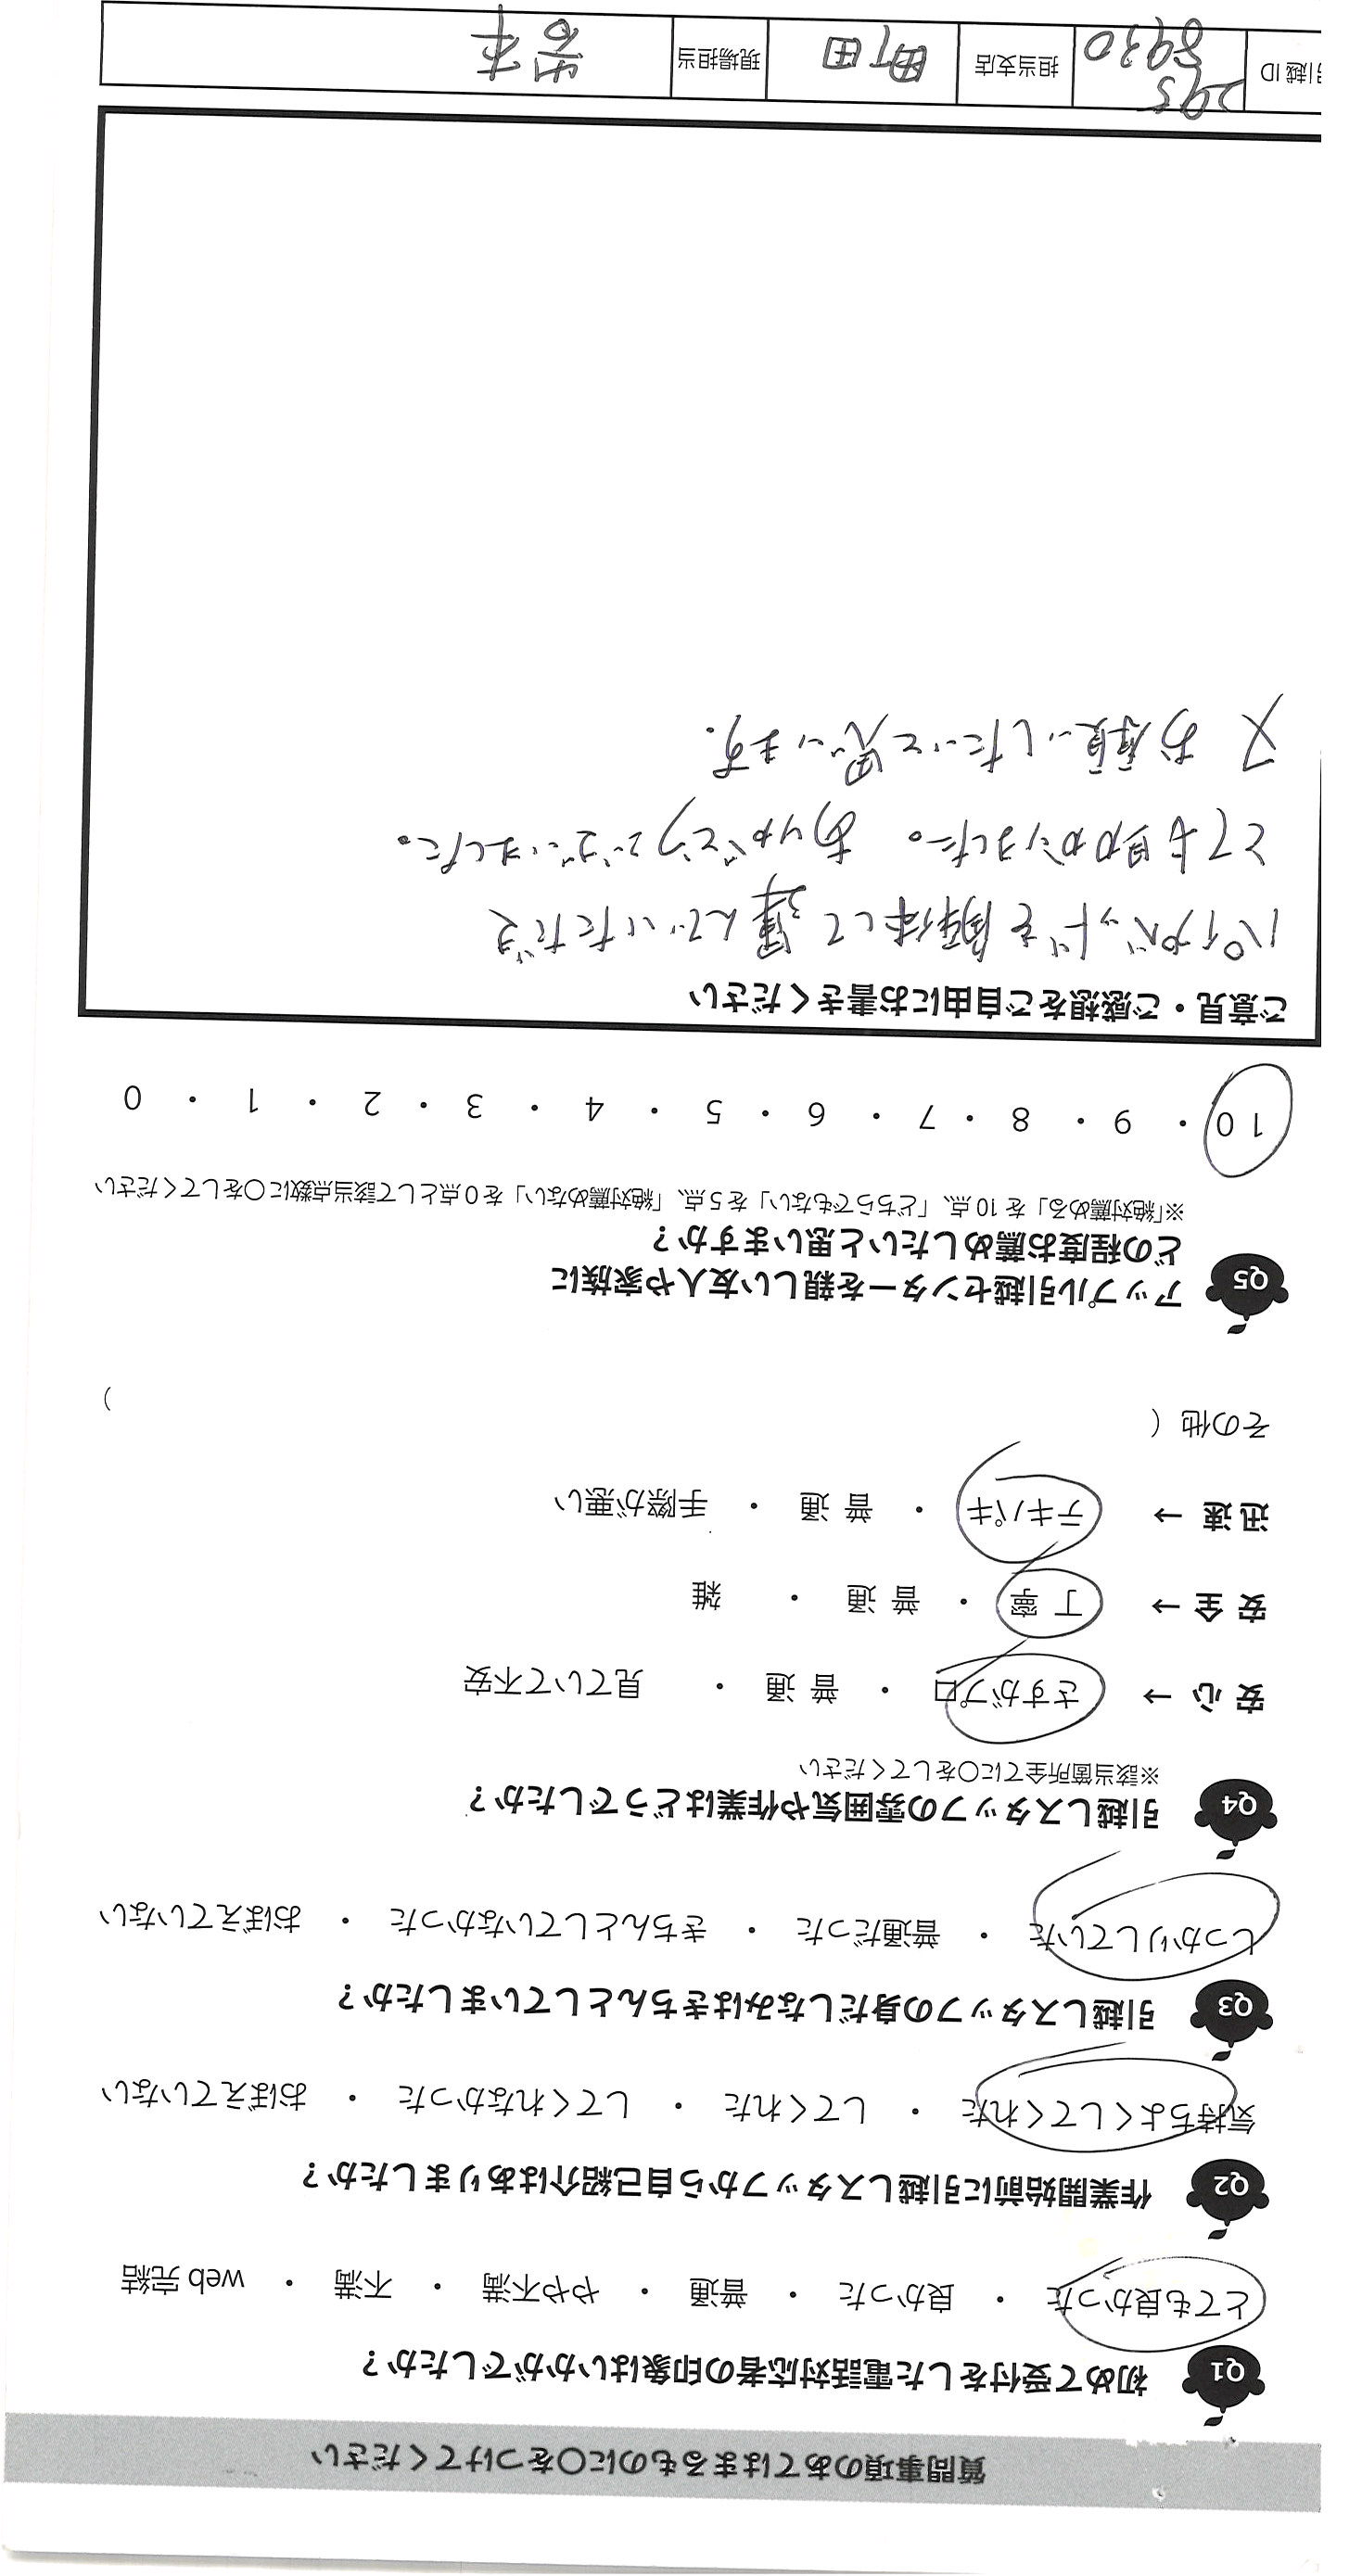 質問事項のあてはまるものに〇をつけてください
Q1 初めて受付をした電話対応者の印象はいかがでしたか？
とても良かった ・ 良かった ・ 普通 ・ やや不満 ・ 不満 ・ web 完結
Q2 作業開始前に引越しスタッフから自己紹介はありましたか？
気持ちよくしてくれた ・ してくれた ・ してくれなかった ・ おぼえていない
Q3 引越しスタッフの身だしなみはきちんとしていましたか？
しっかりしていた ・ 普通だった ・ きちんとしていなかった ・ おぼえていない
Q4 引越しスタッフの雰囲気や作業はどうでしたか？
※該当箇所全てに〇をしてください
安心 → さすがプロ ・ 普通 ・ 見ていて不安
安全 → 丁寧 ・ 普通 ・ 雑
迅速 → テキパキ ・ 普通 ・ 手際が悪い
その他（ ）
Q5 アップル引越センターを親しい友人や家族に
どの程度お薦めしたいと思いますか？
※「絶対薦める」を 10 点、「どちらでもない」を 5 点、「絶対薦めない」を 0 点として該当点数に〇をしてください
10 ・ 9 ・ 8 ・ 7 ・ 6 ・ 5 ・ 4 ・ 3 ・ 2 ・ 1 ・ 0
ご意見・ご感想をご自由にお書きください
パイプベッドを解体して運んでいただき
とても助かりました。 ありがとうございました。
又お願いしたいと思います.
引越 ID 295
8930 担当支店 町田 現場担当 岩本